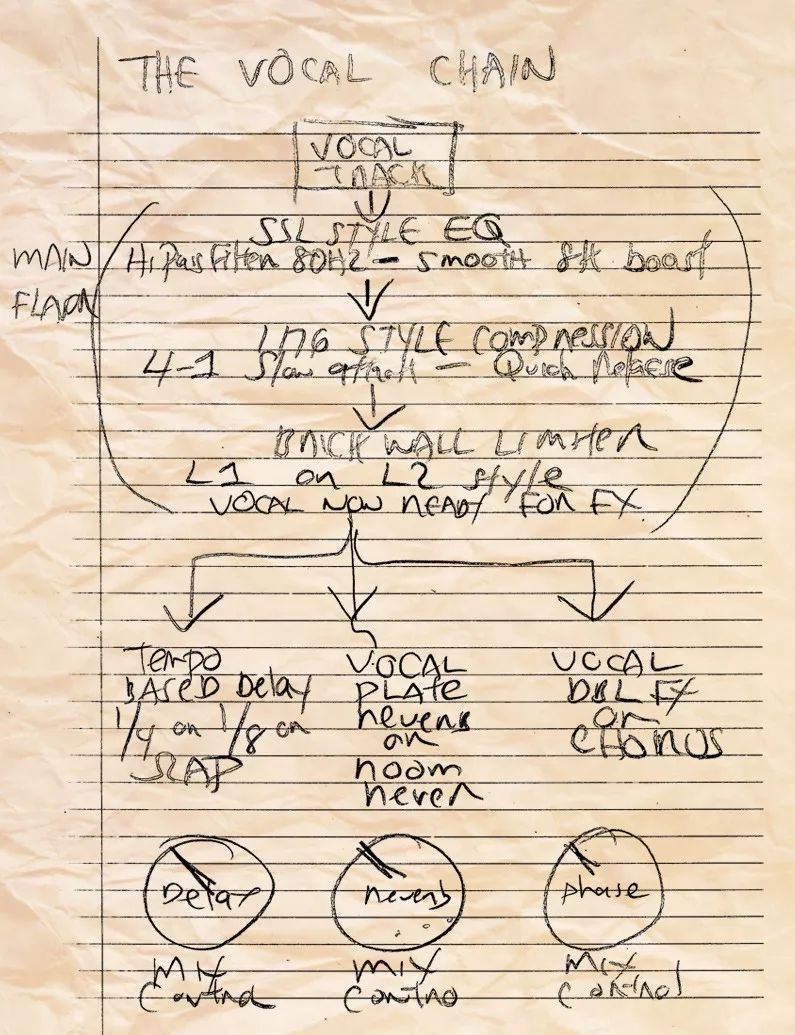 THE VOCAL CHAIN
VOCAL
TRACK
SSL STYLE EQ
MAIN
HiPassFilter 80HZ - smooth 8k boost
1176 STYLE COMPRESSION
4-1 Slow attack - Quick Release
BRICK WALL LIMITER
L1 or L2 style
VOCAL NOW READY FOR FX
Tempo
BASED Delay
1/4 or 1/8 or
SLAP
VOCAL
PLATE
reverb
or
room
rever
VOCAL
DBL FX
or
CHORUS
Delay
reverb
phase
MIX
Control
MIX
Contro
MIX
Control